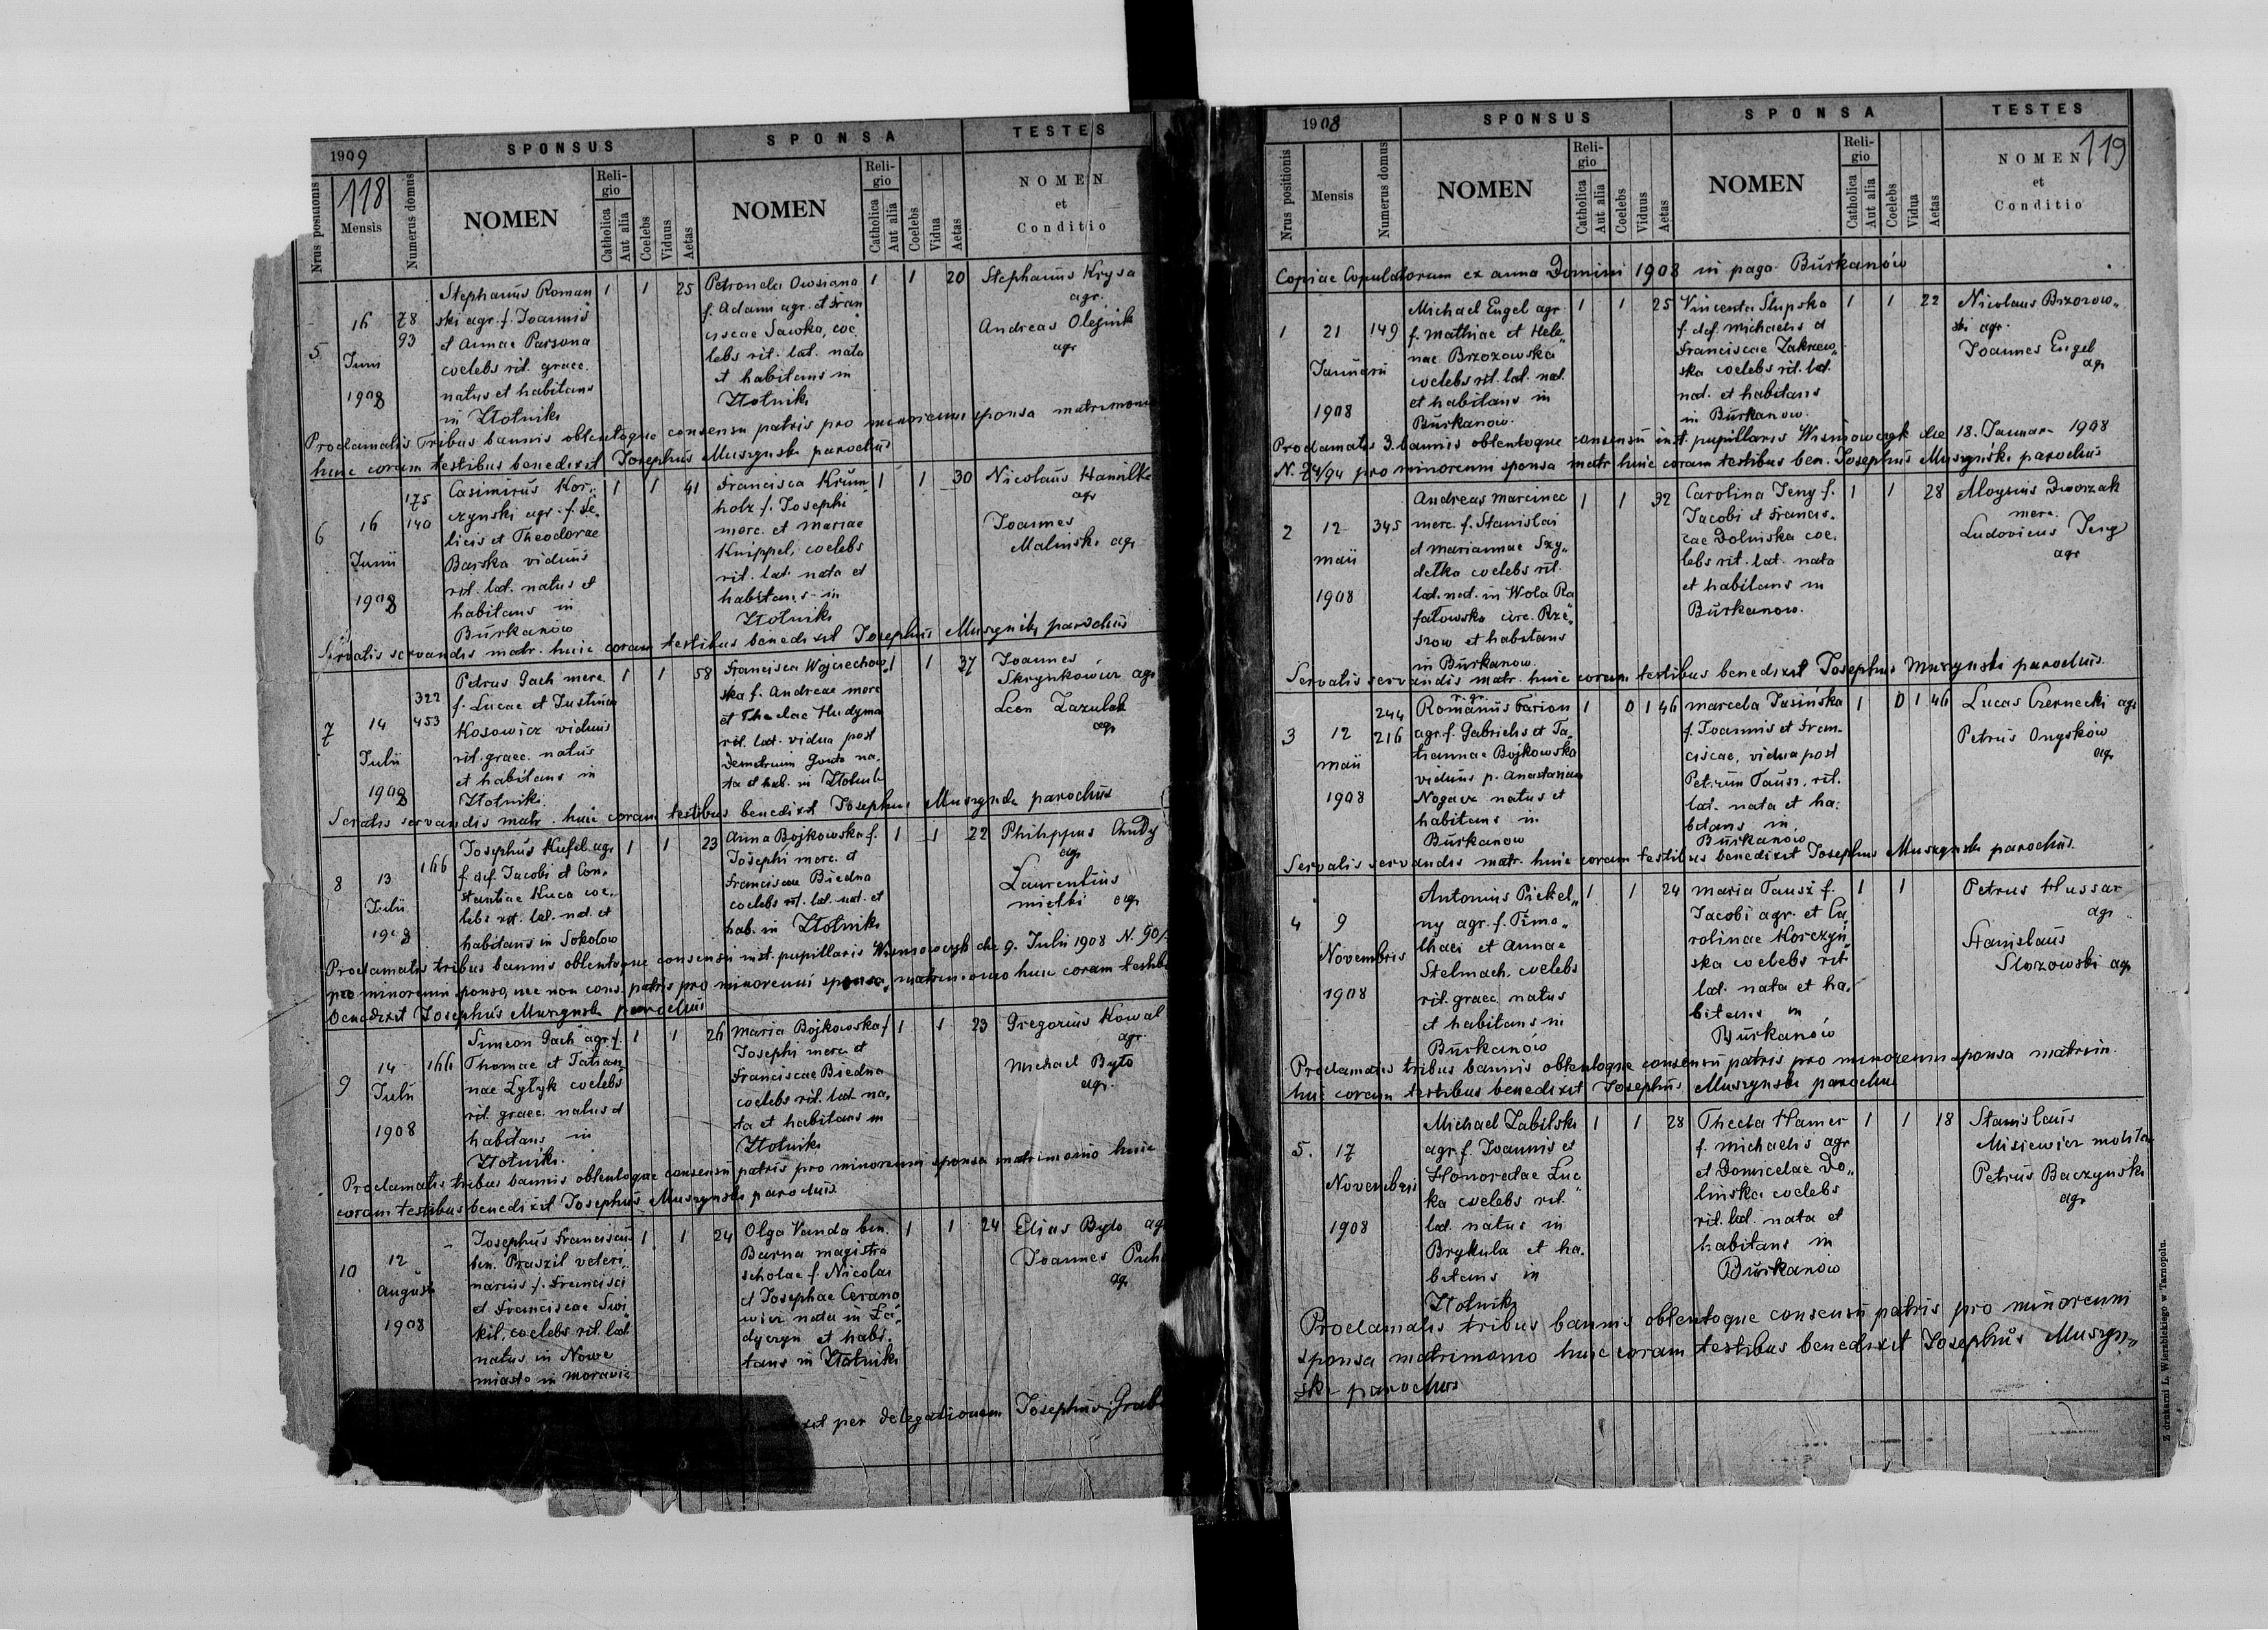 1909
SPONSUS
SPONSA
TESTES
Nrus positionis
118
Mensis
Numerus domus
NOMEN
Religio
Catholica
Aut alia
Coelebs
Viduus
Aetas
NOMEN
Religio
Catholica
Aut alia
Coelebs
Vidua
Aetas
NOMEN
et
Conditio
5
16
Junii
1908
78
93
Stephanus Roman
ski agr. f. Joannis
et Annae Parsona
coelebs rit. graec.
natus et habitans
in Złotniki
1 1 25
Petronela Owsiana
f. Adami agr. et Fran
ciscae Sawka, coe
lebs rit. lat. nata
et habitans in
Złotniki
1 1 20
Stephanus Krysa
agr.
Andreas Olejnik
agr
Proclamatis tribus bannis obtentoque consensu patris pro minorenni sponsa matrimonio
huic coram testibus benedixit Josephus Muszynski parochus
6
16
Junii
1908
175
140
Casimirus Kor„
czynski agr. f. Fe„
licis et Theodorae
Barska viduus
rit. lat. natus et
habitans in
Burkanów
1 1 41
Francisca Krum
holz f. Josephi
merc. et Mariae
Knippel, coelebs
rit. lat. nata et
habitans in
Złotniki
1 1 30
Nicolaus
agr
Joannes
Malinski agr
Servatis servandis matr. huic coram testibus benedixit Josephus Muszynski parochus
7
14
Julii
1908
322
453
Petrus Gach merc.
f. Lucae et Justinae
Kosowicz viduus
rit. graec. natus
et habitans in
Złotniki.
1 1 58
Francisca Wojciechow„
ska f. Andreae merc
et Theclae Hudyma
rit. lat. vidua post
Demetrium na„
ta et hab. in Złotniki
1 1 37
Joannes
Skrynkowicz agr
Leon Zazulak
agr
Servatis servandis matr. huic coram testibus benedixit Josephus Muszynski parochus
8
13
Julii
1908
166
Josephus Kufel agr
f. def. Jacobi et Con„
stantiae Kuca coe„
lebs rit. lat. nat. et
habitans in Sokołow
1 1 23
Anna Bojkowska f.
Josephi merc. et
Franciscae Biedna
coelebs rit. lat. nat. et
hab. in Złotniki
1 1 22
Philippus
agr
Laurentius
agr
Proclamatis tribus bannis obtentoque consensu inst. pupillaris Wisniowczyk die 9. Julii 1908 N. 90/
pro minorenni sponso, nec non cons. patris pro minorenni sponsa, matrimonio huic coram testib
benedixit Josephus Muszynski parochus
9
14
Julii
1908
166
Simeon Gach agr. f.
Thomae et Tatian
nae Łytyk coelebs
rit. graec. natus et
habitans in
Złotniki.
1 1 26
Maria Bojkowska f
Josephi merc. et
Franciscae Biedna
coelebs rit. lat. na„
ta et habitans in
Złotniki
1 1 23
Gregorius Kowal
agr.
Michael Było
agr.
Proclamatis tribus bannis obtentoque consensu patris pro minorenni sponsa matrimonio huic
coram testibus benedixit Josephus Muszynski parochus
10
12
Augusti
1908
Josephus Franciscus
bin. Praszil veteri„
narius f. Francisci
et Franciscae Swi
kil, coelebs rit. lat
natus in Nowe
miasto in Moravia
1 1 24
Olga Vanda bin.
Barna magistra
scholae f. Nicolai
et Josephae Cerano
wicz nata in
dyczyn et habi„
tans in Złotniki
1 1 24
Elias Było agr
Joannes
agr.
xit per delegationem Josephus
1908
SPONSUS
SPONSA
TESTES
Nrus positionis
Mensis
Numerus domus
NOMEN
Religio
Catholica
Aut alia
Coelebs
Viduus
Aetas
NOMEN
Religio
Catholica
Aut alia
Coelebs
Vidua
Aetas
NOMEN
et
Conditio
119
Copiae Copulatorum ex anno Domini 1908 in pago Burkanów
1
21
Januarii
1908
149
Michael Engel agr
f. Mathiae et Hele„
nae Brzozowska
coelebs rit. lat. nat.
et habitans in
Burkanow.
1 1 25
Vincenta Słupska
f. def. Michaelis et
Franciscae Zakrzew„
ska coelebs rit. lat.
nat. et habitans
in Burkanow.
1 1 22
Nicolaus Brzozow„
ski agr.
Joannes Engel
agr
Proclamatis 3. bannis obtentoque consensu inst. pupillaris Wisniowczyk die 18. Januar. 1908
N. 24/94 pro minorenni sponsa matr. huic coram testibus ben. Josephus Muszynski parochus
2
12
Maii
1908
345
Andreas Marciniec
merc. f. Stanislai
et Mariannae Szy„
detka coelebs rit.
lat. nat. in Wola Ra
fałowska circ. Rze„
szow et habitans
in Burkanow.
1 1 32
Carolina Jeny f.
Jacobi et Francis„
cae Dolniska coe„
lebs rit. lat. nata
et habitans in
Burkanow.
1 1 28
Aloysius Dworzak
merc.
Ludovicus Jeny
agr
Servatis servandis matr. huic coram testibus benedixit Josephus Muszynski parochus.
3
12
Maii
1908
244
216
r. gr.
Romanus Farion
agr. f. Gabrielis et Ta„
tiannae Bojkowska
viduus p. Anastasiam
Nogacz natus et
habitans in
Burkanow
1 0 1 46
Marcela Jasińska
f. Joannis et Fran„
ciscae, vidua post
Petrum Tausz, rit.
lat. nata et ha„
bitans in
Burkanów
1 0 1 46
Lucas Czernecki agr
Petrus Onyskow
agr
Servatis servandis matr. huic coram testibus benedixit Josephus Muszynski parochus.
4
9
Novembris
1908
Antonius Piekel„
ny agr. f. Timo„
thaei et Annae
Stelmach, coelebs
rit. graec. natus
et habitans in
Burkanów
1 1 24
Maria Tausz f.
Jacobi agr. et Ca„
rolinae Korczyń„
ska coelebs rit
lat. nata et ha„
bitans in
Burkanów
1 1
Petrus Hussar
agr
Stanislaus
Slozowski agr
Proclamatis tribus bannis obtentoque consensu patris pro minorenni sponsa matrim.
huic coram testibus benedixit Josephus Muszynski parochus
5.
17
Novembris
1908
Michael Zabilski
agr. f. Joannis et
Honoratae Łuc„
ka coelebs rit.
lat. natus in
Brykula et ha„
bitans in
Złotniki
1 1 28
Thecla Hamer
f. Michaelis agr
et Domicelae Do„
linska coelebs
rit. lat. nata et
habitans in
Burkanów
1 1 18
Stanislaus
Misiewicz molitor
Petrus Baczynski
agr
Proclamatis tribus bannis obtentoque consensu patris pro minorenni
sponsa matrimonio huic coram testibus benedixit Josephus Muszyn„
ski parochus
Z drukarni L. Wierzbickiego w Tarnopolu.